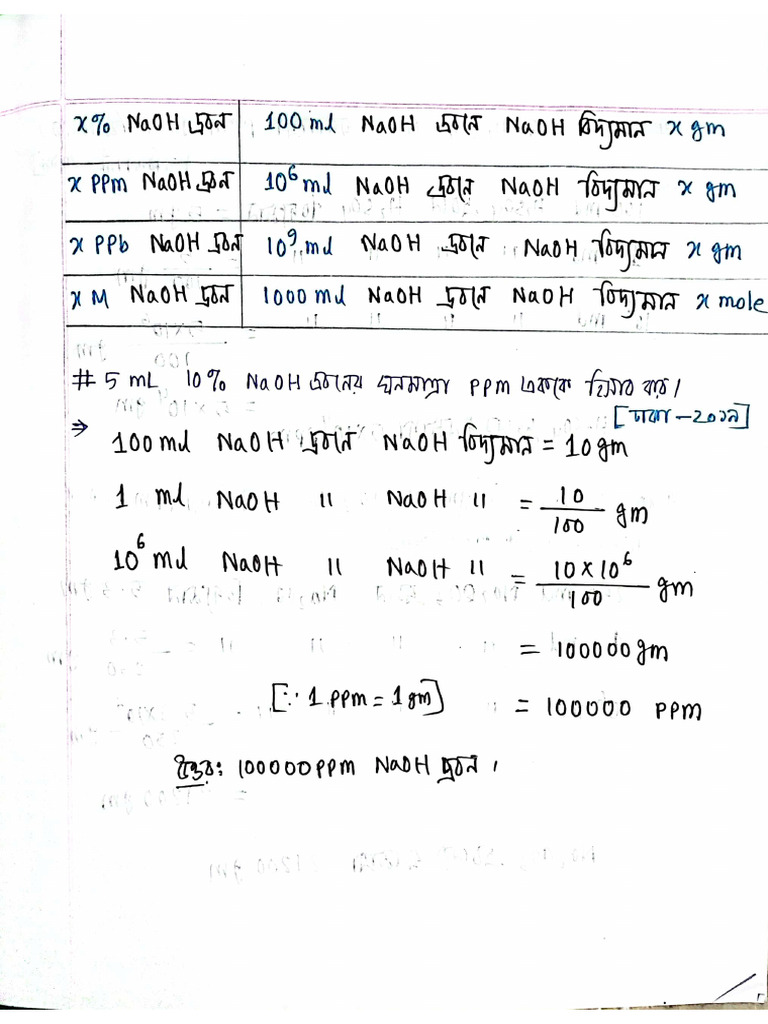 x% NaOH দ্রবন 100 ml NaOH দ্রবনে NaOH বিদ্যমান x gm
x PPm NaOH দ্রবন 10⁶ ml NaOH দ্রবনে NaOH বিদ্যমান x gm
x PPb NaOH দ্রবন 10⁹ ml NaOH দ্রবনে NaOH বিদ্যমান x gm
x M NaOH দ্রবন 1000 ml NaOH দ্রবনে NaOH বিদ্যমান x mole
# 5 mL 10% NaOH দ্রবনের ঘনমাত্রা PPm এককে হিসাব কর।
[ঢাকা - ২০১৯]
⇒ 100 ml NaOH দ্রবনে NaOH বিদ্যমান = 10 gm
1 ml NaOH " NaOH " = 10/100 gm
10⁶ ml NaOH " NaOH " = 10 × 10⁶/100 gm
= 100000 gm
[∵ 1 PPm = 1 gm] = 100000 PPm
উত্তর: 100000 PPm NaOH দ্রবন।